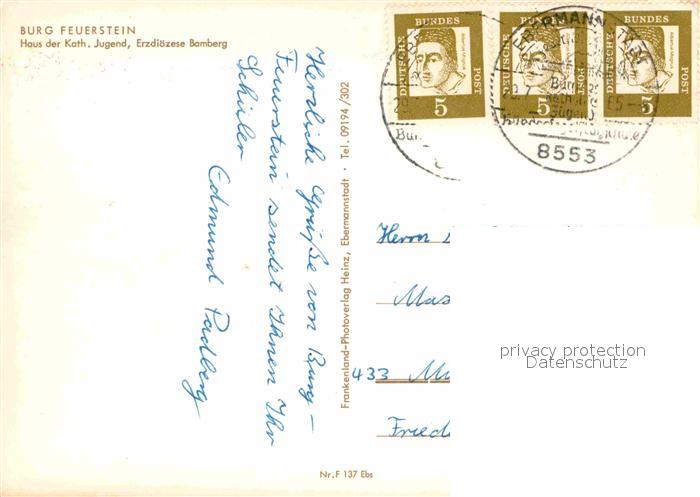 BURG FEUERSTEIN
Haus der Kath. Jugend, Erzdiözese Bamberg
Herzliche Grüße von Burg-
Feuerstein sendet Ihnen Ihr
Schüler
Edmund Padberg
Frankenland-Photoverlag Heinz, Ebermannstadt · Tel. 09194/302
DEUTSCHE BUNDES POST
5
DEUTSCHE BUNDES POST
5
DEUTSCHE BUNDES POST
5
8553
Herrn
433
privacy protection
Datenschutz
Nr. F 137 Ebs